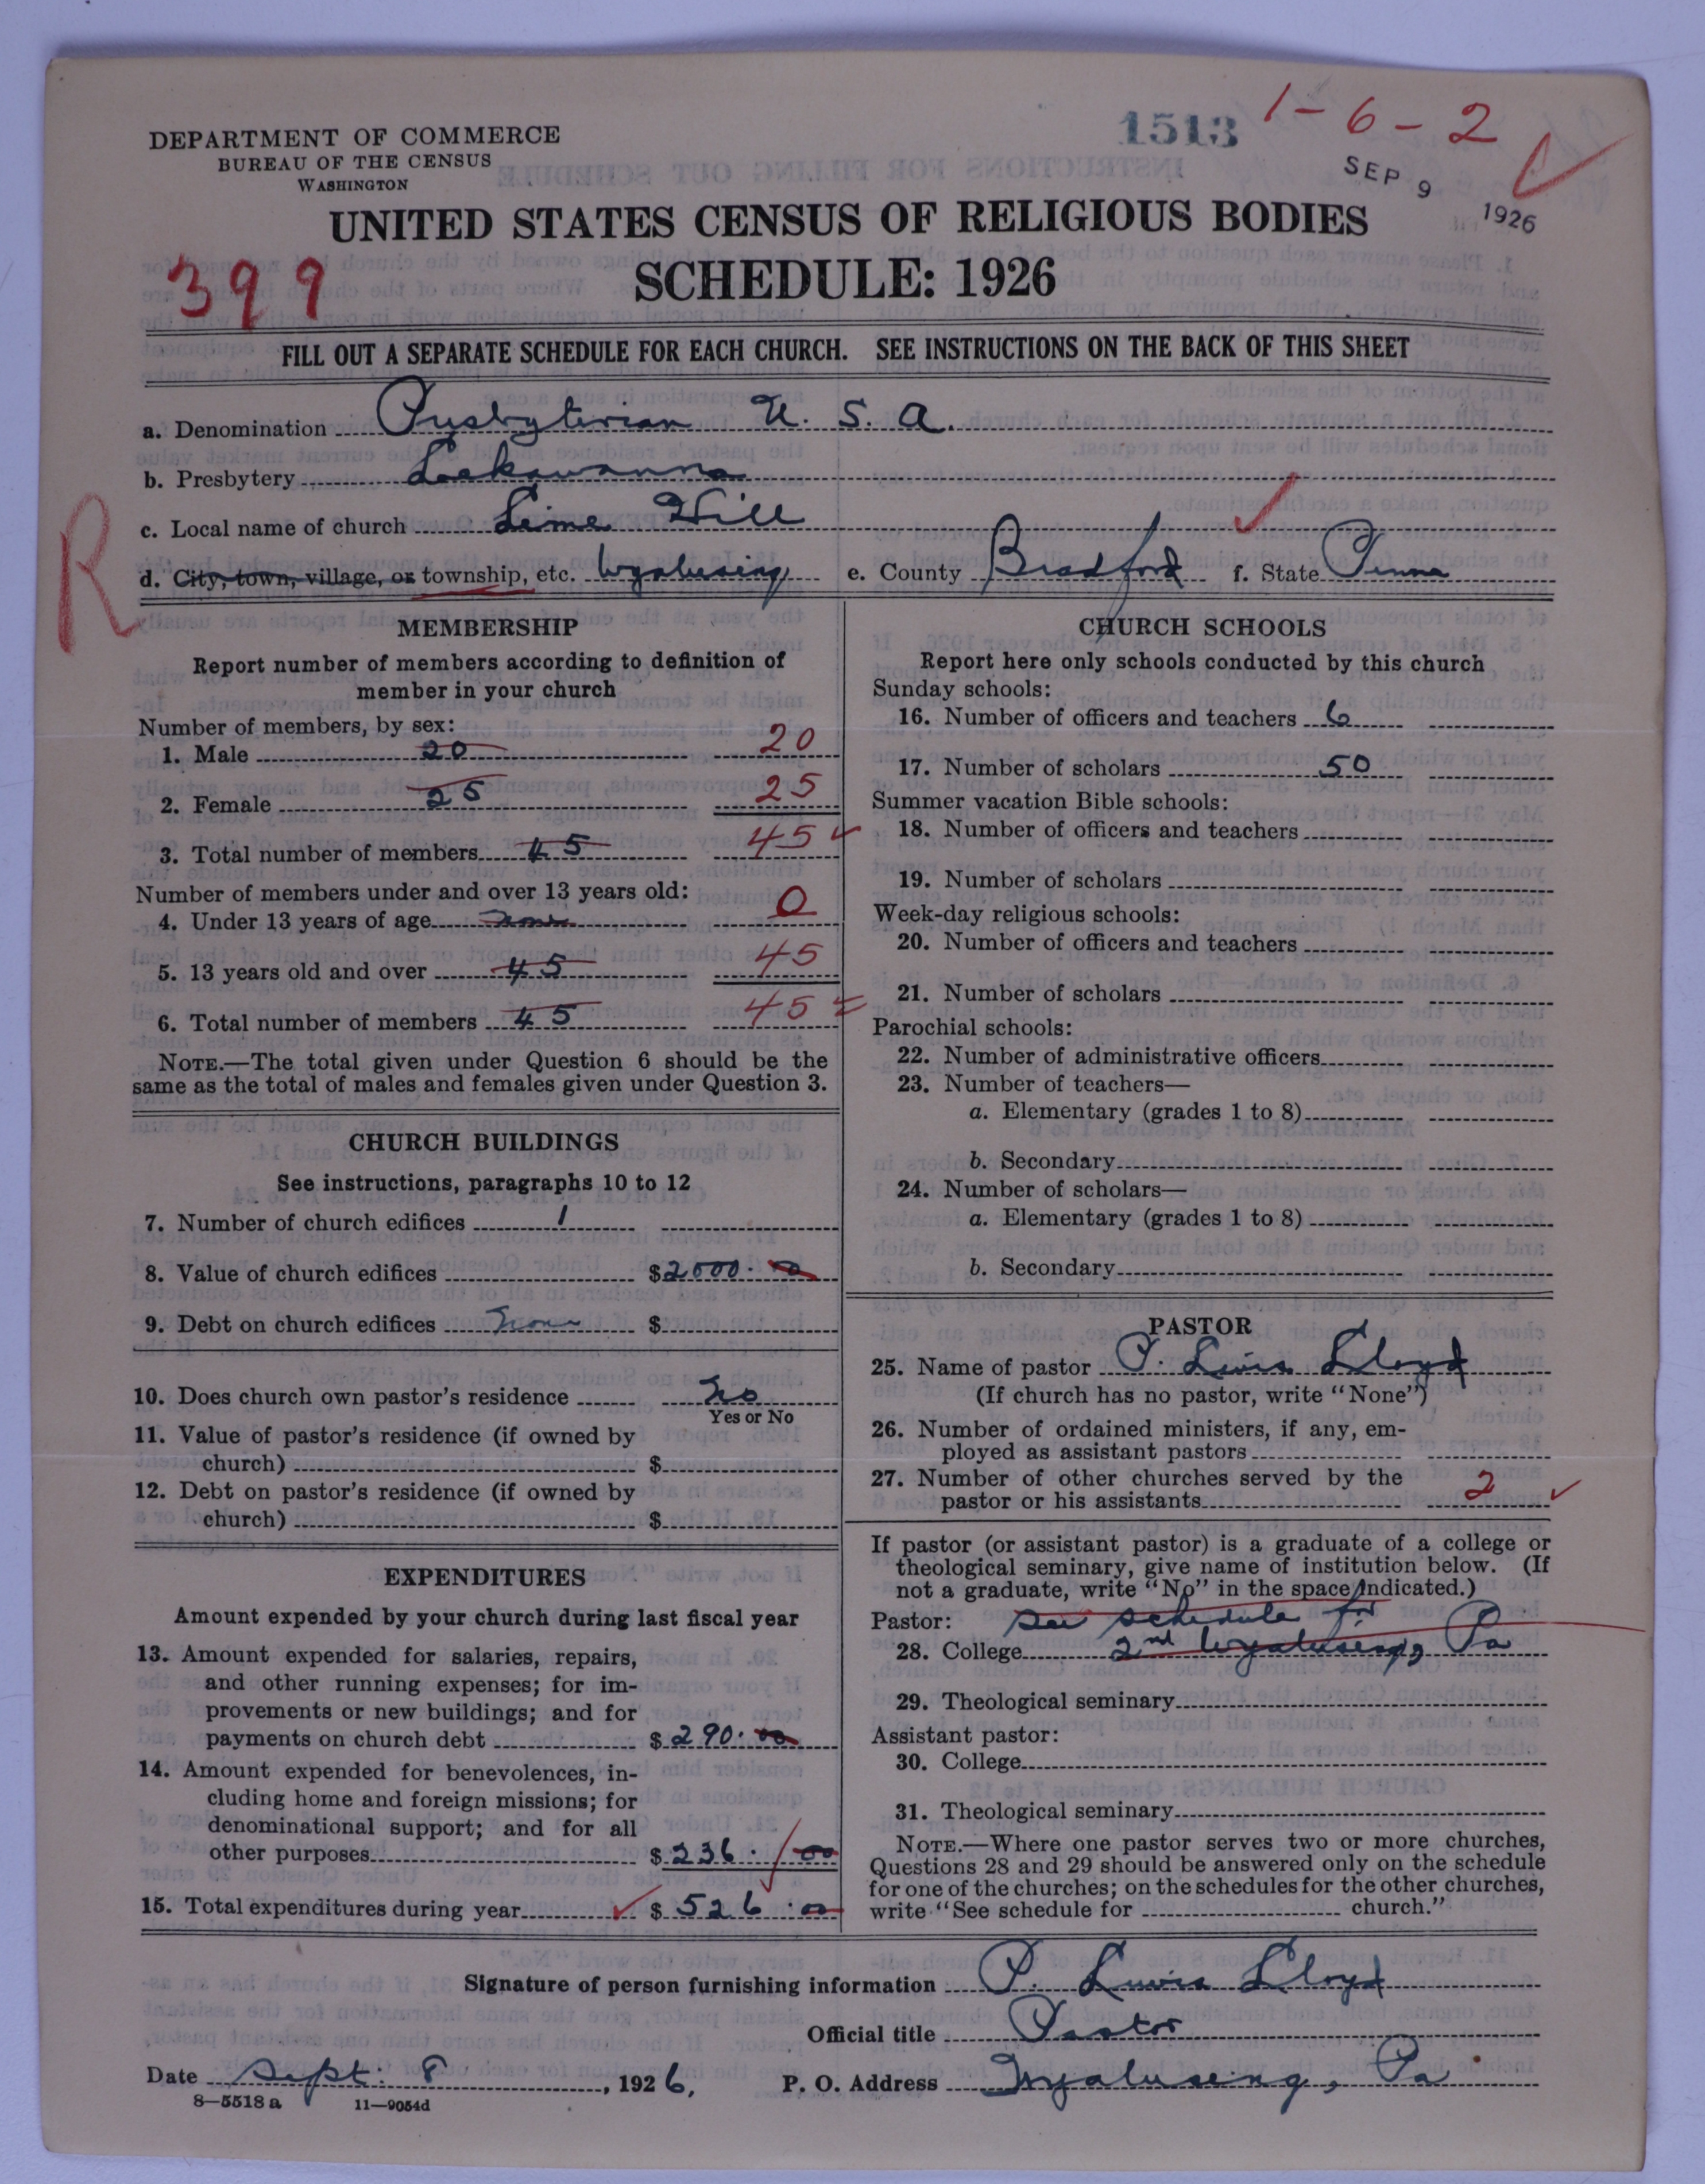 1513
1-6-2
DEPARTMENT OF COMMERCE
BUREAU OF THE CENSUS
WASHINGTON
SEP 9 1926
UNITED STATES CENSUS OF RELIGIOUS BODIES
SCHEDULE: 1926
399
FILL OUT A SEPARATE SCHEDULE FOR EACH CHURCH. SEE INSTRUCTIONS ON THE BACK OF THIS SHEET
a. Denomination Presbyterian U. S. A.
b. Presbytery Lackawanna
c. Local name of church Lime Hill
R
d. City, town, village, or township, etc. Wyalusing e. County Bradford f. State Penna
MEMBERSHIP
Report number of members according to definition of
member in your church
Number of members, by sex:
1. Male 20 20
2. Female 25 25
3. Total number of members 45 45
Number of members under and over 13 years old:
4. Under 13 years of age None 0
5. 13 years old and over 45 45
6. Total number of members 45 45
NOTE.—The total given under Question 6 should be the
same as the total of males and females given under Question 3.
CHURCH BUILDINGS
See instructions, paragraphs 10 to 12
7. Number of church edifices 1
8. Value of church edifices $2000.00
9. Debt on church edifices None $
10. Does church own pastor's residence No
Yes or No
11. Value of pastor's residence (if owned by
church) $
12. Debt on pastor's residence (if owned by
church) $
EXPENDITURES
Amount expended by your church during last fiscal year
13. Amount expended for salaries, repairs,
and other running expenses; for im-
provements or new buildings; and for
payments on church debt $290.00
14. Amount expended for benevolences, in-
cluding home and foreign missions; for
denominational support; and for all
other purposes $236.00
15. Total expenditures during year $526.00
CHURCH SCHOOLS
Report here only schools conducted by this church
Sunday schools:
16. Number of officers and teachers 6
17. Number of scholars 50
Summer vacation Bible schools:
18. Number of officers and teachers
19. Number of scholars
Week-day religious schools:
20. Number of officers and teachers
21. Number of scholars
Parochial schools:
22. Number of administrative officers
23. Number of teachers—
a. Elementary (grades 1 to 8)
b. Secondary
24. Number of scholars—
a. Elementary (grades 1 to 8)
b. Secondary
PASTOR
25. Name of pastor P. Lewis Lloyd
(If church has no pastor, write "None")
26. Number of ordained ministers, if any, em-
ployed as assistant pastors
27. Number of other churches served by the
pastor or his assistants 2
If pastor (or assistant pastor) is a graduate of a college or
theological seminary, give name of institution below. (If
not a graduate, write "No" in the space indicated.)
Pastor: See schedule for
28. College 2nd Wyalusing, Pa
29. Theological seminary
Assistant pastor:
30. College
31. Theological seminary
NOTE.—Where one pastor serves two or more churches,
Questions 28 and 29 should be answered only on the schedule
for one of the churches; on the schedules for the other churches,
write "See schedule for church."
Signature of person furnishing information P. Lewis Lloyd
Official title Pastor
Date Sept. 8, 1926, P. O. Address Wyalusing, Pa
8—5518 a 11—9054d